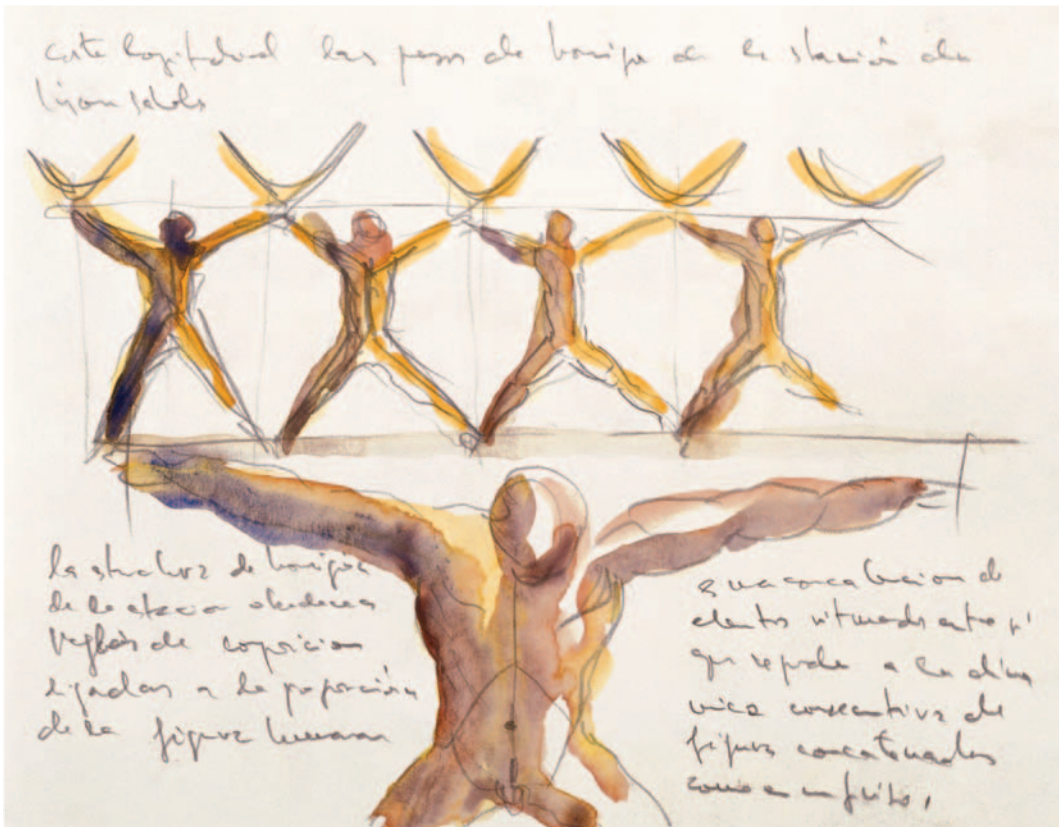 corte longitudinal los de hormigon de la stación de
Lyon Satolas
la structura de hormigon
de la stacion obedece a
reglas de composicion
ligadas a la proporción
de la figura humana
es una concatenacion de
elementos ritmados entre si
que responde a la dina
mica consecutiva de
figuras concatenadas
como en un friso,